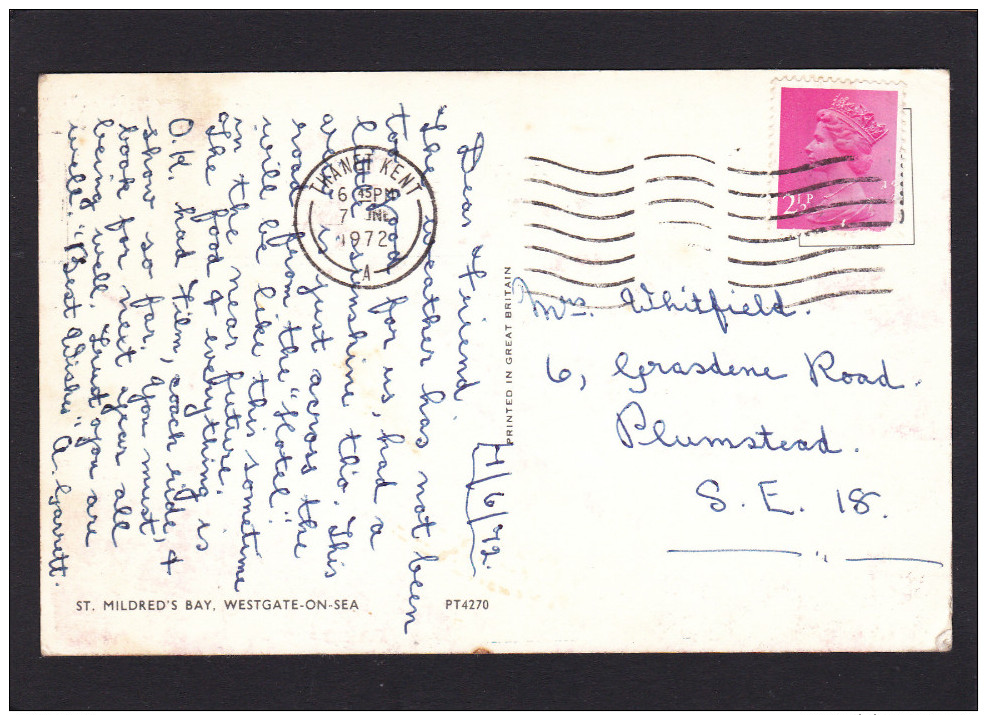 Dear Friend, 7/6/72.
The weather has not been
too good for us, had a
little sunshine tho. This
is just across the
road from the "Hotel".
will be like this sometime
in the near future.
The food & everything is
O.K. had film, coach ride, &
show so far. You must
book for next year all
being well. Trust you are
well. "Best Wishes" A. Garrett.
THANET KENT
6 45 PM
7 JNE
1972
A
2½P
PRINTED IN GREAT BRITAIN
Mrs. Whitfield.
6, Grasdene Road.
Plumstead.
S. E. 18.
ST. MILDRED'S BAY, WESTGATE-ON-SEA
PT4270